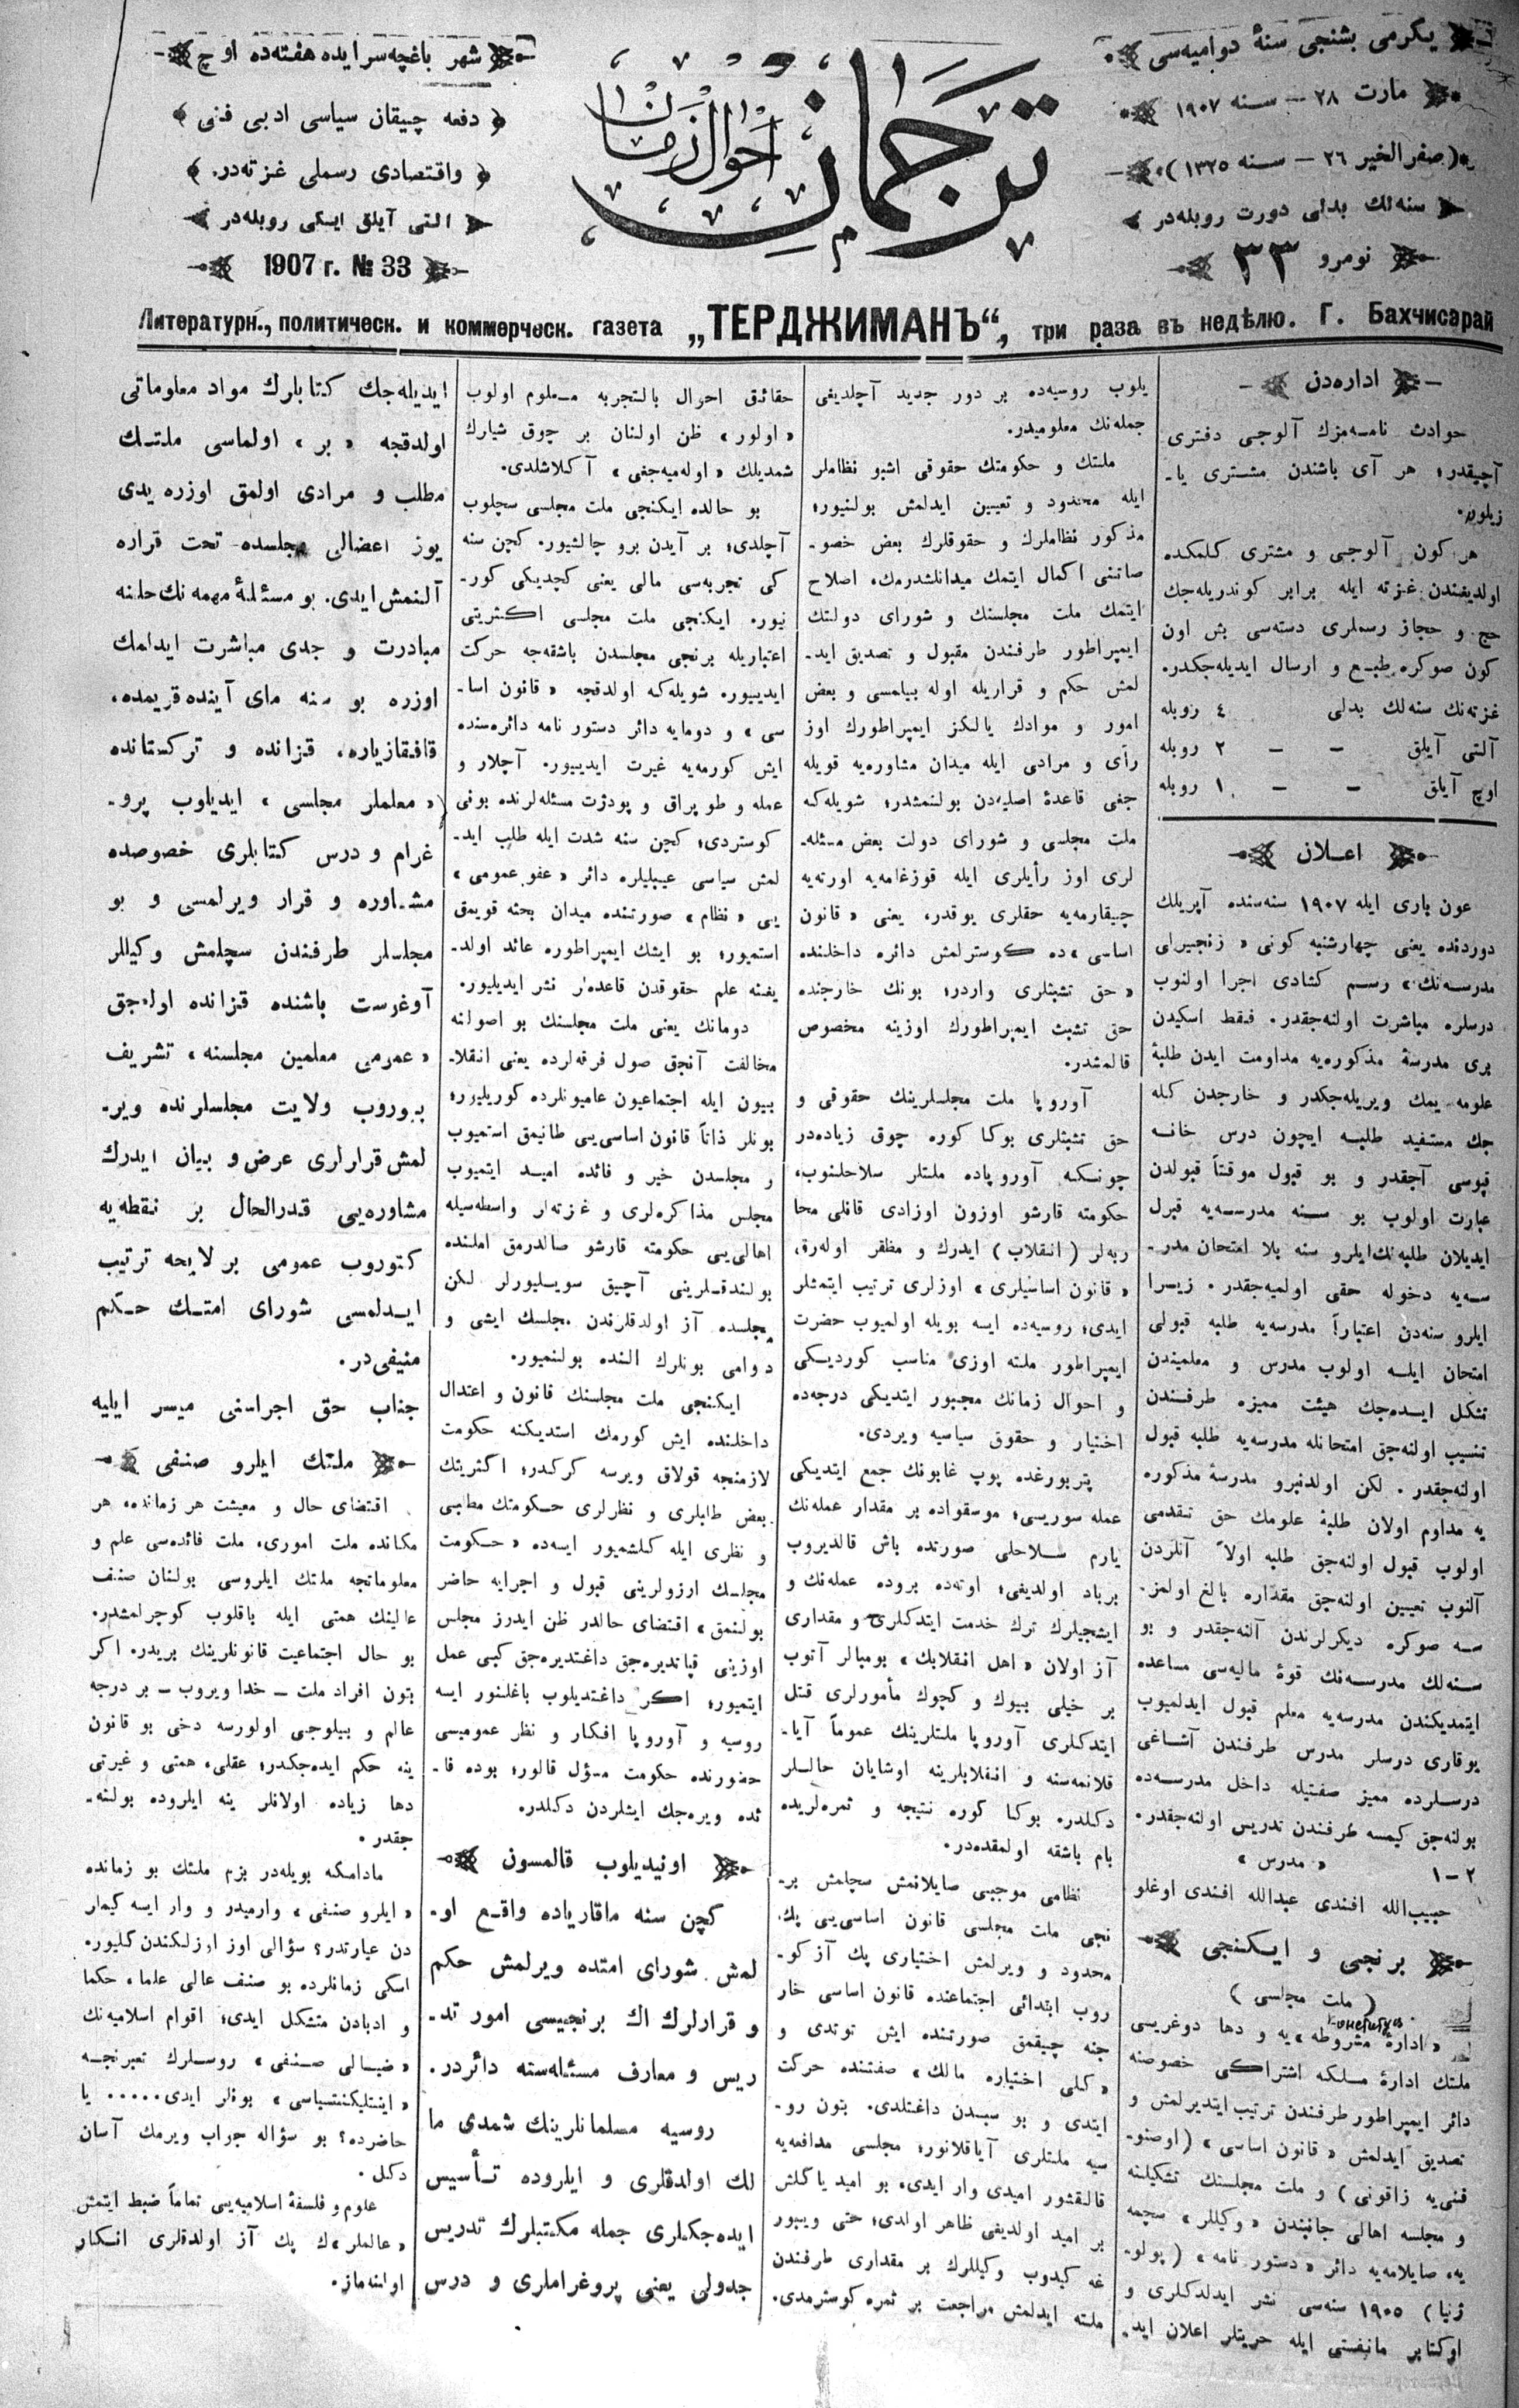 یكرمی بشنجی سنهٔ دوامیه‌سی
مارت ٢٨ — سنه ١٩٠٧
(صفر الخیر ٢٦ — سنه ١٣٢٥)
سنه‌لك بدلی دورت روبله‌در
نومرو ٣٣
ترجمان
احوال زمان
شهر باغچه‌سرایده هفته‌ده اوچ
دفعه چیقان سیاسی ادبی فنی
واقتصادی رسملی غزته‌در.
التی آیلق ایكی روبله‌در
1907 г. № 33
Литературн., политическ. и коммерческ. газета „ТЕРДЖИМАНЪ“, три раза въ недѣлю. Г. Бахчисарай
اداره‌دن
حوادث نامه‌مزك آلوجی دفتری
آچیقدر؛ هر آی باشندن مشتری یا-
زیلور.
هر كون آلوجی و مشتری كلمكده
اولدیغندن غزته ایله برابر كوندریله‌جك
حج و حجاز رسملری دسته‌سی بش اون
كون صوكره طبع و ارسال ایدیله‌جكدر.
غزته‌نك سنه‌لك بدلی ٤ روبله
آلتی آیلق — — ٢ روبله
اوچ آیلق — — ١ روبله
اعلان
عون باری ایله ١٩٠٧ سنه‌سنده آپریلك
دوردنده یعنی چهارشنبه كونی «زنجیرلی
مدرسه‌نك» رسم كشادی اجرا اولنوب
درسلره مباشرت اولنه‌جقدر. فقط اسكیدن
بری مدرسهٔ مذكوره‌یه مداومت ایدن طلبهٔ
علومه یمك ویریله‌جكدر و خارجدن كله
جك مستفید طلبه ایچون درس خانه
قپوسی آجقدر و بو قبول موقتاً قبولدن
عبارت اولوب بو سنه مدرسه‌یه قبول
ایدیلان طلبه‌نك ایلرو سنه بلا امتحان مدر-
سه‌یه دخوله حقی اولمیه‌جقدر. زیرا
ایلرو سنه‌دن اعتباراً مدرسه‌یه طلبه قبولی
امتحان ایله اولوب مدرس و معلمیندن
تشكل ایده‌جك هیئت ممیزه طرفندن
تنسیب اولنه‌جق امتحانله مدرسه‌یه طلبه قبول
اولنه‌جقدر. لكن اولدنبرو مدرسهٔ مذكوره
یه مداوم اولان طلبهٔ علومك حق تقدمی
اولوب قبول اولنه‌جق طلبه اولاً آنلردن
آلنوب تعیین اولنه‌جق مقداره بالغ اولمز-
سه صوكره دیكرلرندن آلنه‌جقدر و بو
سنه‌لك مدرسه‌نك قوهٔ مالیه‌سی مساعده
ایتمدیكندن مدرسه‌یه معلم قبول ایدلمیوب
یوقاری درسلر مدرس طرفندن آشاغی
درسلرده ممیز صفتیله داخل مدرسه‌ده
بولنه‌جق كیمسه طرفندن تدریس اولنه‌جقدر.
٢—١ «مدرس»
حبیب‌الله افندی عبدالله افندی اوغلو
برنجی و ایكنجی
(ملت مجلسی)
«ادارهٔ مشروطه»یه و دها دوغریسی
ملتك ادارهٔ ملكه اشتراكی خصوصنه
دائر ایمپراطور طرفندن ترتیب ایتدیرلمش و
تصدیق ایدلمش «قانون اساسی» (اوصنو-
فنی‌یه زاقونی) و ملت مجلسنك تشكیلنه
و مجلسه اهالی جانبندن «وكیللر» سچمه
یه، صایلامه‌یه دائر «دستور نامه» (پولو-
ژنیا) ١٩٠٥ سنه‌سی نشر ایدلدكلری و
اوكتابر مانفستی ایله حریتلر اعلان اید-
یلوب روسیه‌ده بر دور جدید آچلدیغی
جمله‌نك معلومیدر.
ملتك و حكومتك حقوقی اشبو نظاملر
ایله محدود و تعیین ایدلمش بولنیور؛
مذكور نظاملرك و حقوقلرك بعض خصو-
صاتنی اكمال ایتمك میدانلشدرمك، اصلاح
ایتمك ملت مجلسنك و شورای دولتك
ایمپراطور طرفندن مقبول و تصدیق اید-
لمش حكم و قراریله اوله بیلمسی و بعض
امور و موادك یالكز ایمپراطورك اوز
رأی و مرادی ایله میدان مشاوره‌یه قویله
جغی قاعدهٔ اصلیه‌دن بولنمشدر؛ شویله‌كه
ملت مجلسی و شورای دولت بعض مسئله-
لری اوز رأیلری ایله قوزغامه‌یه اورته‌یه
چیقارمه‌یه حقلری یوقدر، یعنی «قانون
اساسی»ده كوسترلمش دائره داخلنده
«حق تشبثلری واردر؛ بونك خارجنده
حق تشبث ایمپراطورك اوزینه مخصوص
قالمشدر.
آوروپا ملت مجلسلرینك حقوقی و
حق تشبثلری بوكا كوره چوق زیاده‌در
چونكه آوروپاده ملتلر سلاحلنوب،
حكومته قارشو اوزون اوزادی قانلی محا
ربه‌لر (انقلاب) ایدرك و مظفر اوله‌رق،
«قانون اساسیلری» اوزلری ترتیب ایتمشلر
ایدی؛ روسیه‌ده ایسه بویله اولمیوب حضرت
ایمپراطور ملته اوزی مناسب كوردیكی
و احوال زمانك مجبور ایتدیكی درجه‌ده
اختیار و حقوق سیاسیه ویردی.
پتربورغده پوپ غاپونك جمع ایتدیكی
عمله سوریسی؛ موسقواده بر مقدار عمله‌نك
یارم سلاحلی صورتده باش قالدیروب
برباد اولدیغی؛ اوته‌ده بروده عمله‌نك و
ایشجیلرك ترك خدمت ایتدكلری و مقداری
آز اولان «اهل انقلابك» بومبالر آتوب
بر خیلی بیوك و كچوك مأمورلری قتل
ایتدكلری آوروپا ملتلرینك عموماً آیا-
قلانمه‌سنه و انقلابلرینه اوشایان حاللر
دكلدر. بوكا كوره نتیجه و ثمره‌لریده
بام باشقه اولمقده‌در.
نظامی موجبی صایلانمش سچلمش بر-
نجی ملت مجلسی قانون اساسی‌یی پك
محدود و ویرلمش اختیاری پك آز كو-
روب ابتدائی اجتماعنده قانون اساسی خار
جنه چیقمق صورتنده ایش توتدی و
«كلی اختیاره مالك» صفتنده حركت
ایتدی و بو سببدن داغتلدی. بتون رو-
سیه ملتلری آیاقلانور؛ مجلسی مدافعه‌یه
قالقشور امیدی وار ایدی، بو امید یاكلش
بر امید اولدیغی ظاهر اولدی؛ حتی ویبور
غه كیدوب وكیللرك بر مقداری طرفندن
ملته ایدلمش مراجعت بر ثمره كوسترمدی.
حقائق احوال بالتجربه معلوم اولوب
«اولور» ظن اولنان بر چوق شیلرك
شمدیلك «اوله‌میه‌جغی» آكلاشلدی.
بو حالده ایكنجی ملت مجلسی سچلوب
آچلدی؛ بر آیدن برو چالشیور. كچن سنه
كی تجربه‌سی مالی یعنی كچدیكی كور-
نیور. ایكنجی ملت مجلسی اكثریتی
اعتباریله برنجی مجلسدن باشقه‌جه حركت
ایدییور. شویله‌كه اولدقجه «قانون اسا-
سی» و دومایه دائر دستور نامه دائره‌سنده
ایش كورمه‌یه غیرت ایدییور. آچلار و
عمله و طوپراق و پودژت مسئله‌لرنده بونی
كوستردی؛ كچن سنه شدت ایله طلب اید-
لمش سیاسی عیبلیلره دائر «عفو عمومی»
یی «نظام» صورتنده میدان بحثه قویمق
استمیور؛ بو ایشك ایمپراطوره عائد اولد-
یغنه علم حقوقدن قاعده‌لر نشر ایدیلیور.
دومانك یعنی ملت مجلسنك بو اصولنه
مخالفت آنجق صول فرقه‌لرده یعنی انقلا-
بیون ایله اجتماعیون عامیونلرده كوریلیور؛
بونلر ذاتاً قانون اساسی‌یی طانیمق استمیوب
و مجلسدن خیر و فائده امید ایتمیوب
مجلس مذاكره‌لری و غزته‌لر واسطه‌سیله
اهالی‌یی حكومته قارشو صالدرمق املنده
بولندقلرینی آچیق سویلیورلر لكن
مجلسده آز اولدقلرندن مجلسك ایشی و
دوامی بونلرك النده بولنمیور.
ایكنجی ملت مجلسنك قانون و اعتدال
داخلنده ایش كورمك استدیكنه حكومت
لازمنجه قولاق ویرسه كركدر؛ اكثریتك
بعض طلبلری و نظرلری حكومتك مطلبی
و نظری ایله كلشمیور ایسه‌ده «حكومت
مجلسك ارزولرینی قبول و اجرایه حاضر
بولنمق» اقتضای حالدر ظن ایدرز مجلس
اوزینی قپاتدیره‌جق داغتدیره‌جق كبی عمل
ایتمیور؛ اكر داغتدیلوب باغلنور ایسه
روسیه و آوروپا افكار و نظر عمومیسی
حضورنده حكومت مسؤل قالور؛ بوده فا-
ئده ویره‌جك ایشلردن دكلدر.
اونیدیلوب قالمسون
كچن سنه ماقاریاده واقع او-
لمش شورای امتده ویرلمش حكم
و قرارلرك اك برنجیسی امور تد-
ریس و معارف مسئله‌سنه دائردر.
روسیه مسلمانلرینك شمدی ما
لك اولدقلری و ایلروده تأسیس
ایده‌جكلری جمله مكتبلرك تدریس
جدولی یعنی پروغراملری و درس
ایدیله‌جك كتابلرك مواد معلوماتی
اولدقجه «بر» اولماسی ملتك
مطلب و مرادی اولمق اوزره یدی
یوز اعضالی مجلسده تحت قراره
آلنمش ایدی. بو مسئلهٔ مهمه‌نك حلنه
مبادرت و جدی مباشرت ایدلمك
اوزره بو سنه مای آینده قریمده،
قافقازیاره، قزانده و تركستانده
«معلملر مجلسی» ایدیلوب پرو-
غرام و درس كتابلری خصوصده
مشاوره و قرار ویرلمسی و بو
مجلسلر طرفندن سچلمش وكیللر
آوغوست باشنده قزانده اوله‌جق
«عمومی معلمین مجلسنه» تشریف
بیوروب ولایت مجلسلرنده ویر-
لمش قراراری عرض و بیان ایدرك
مشاوره‌یی قدرالحال بر نقطه‌یه
كتوروب عمومی بر لایحه ترتیب
ایدلمسی شورای امتك حكم
منیفی‌در.
جناب حق اجراسنی میسر ایلیه
ملتك ایلرو صنفی
اقتضای حال و معیشت هر زمانده، هر
مكانده ملت اموری، ملت فائده‌سی علم و
معلوماتجه ملتك ایلروسی بولنان صنف
عالینك همتی ایله باقلوب كوچرلمشدر.
بو حال اجتماعیت قانونلرینك بریدر. اكر
بتون افراد ملت — خدا ویروب — بر درجه
عالم و بیلوجی اولورسه دخی بو قانون
ینه حكم ایده‌جكدر؛ عقلی، همتی و غیرتی
دها زیاده اولانلر ینه ایلروده بولنه-
جقدر.
مادامكه بویله‌در بزم ملتك بو زمانده
«ایلرو صنفی» وارمیدر و وار ایسه كیملر
دن عبارتدر؟ سؤالی اوز اوزلكندن كلیور.
اسكی زمانلرده بو صنف عالی علماء، حكما
و ادبادن متشكل ایدی؛ اقوام اسلامیه‌نك
«ضیالی صنفی» روسلرك تعبیرنجه
«اینتلیكنتسیاسی» بونلر ایدی..... یا
حاضرده؟ بو سؤاله جواب ویرمك آسان
دكل.
علوم و فلسفهٔ اسلامیه‌یی تماماً ضبط ایتمش
«عالملر»ك پك آز اولدقلری انكار
اولنه‌ماز.